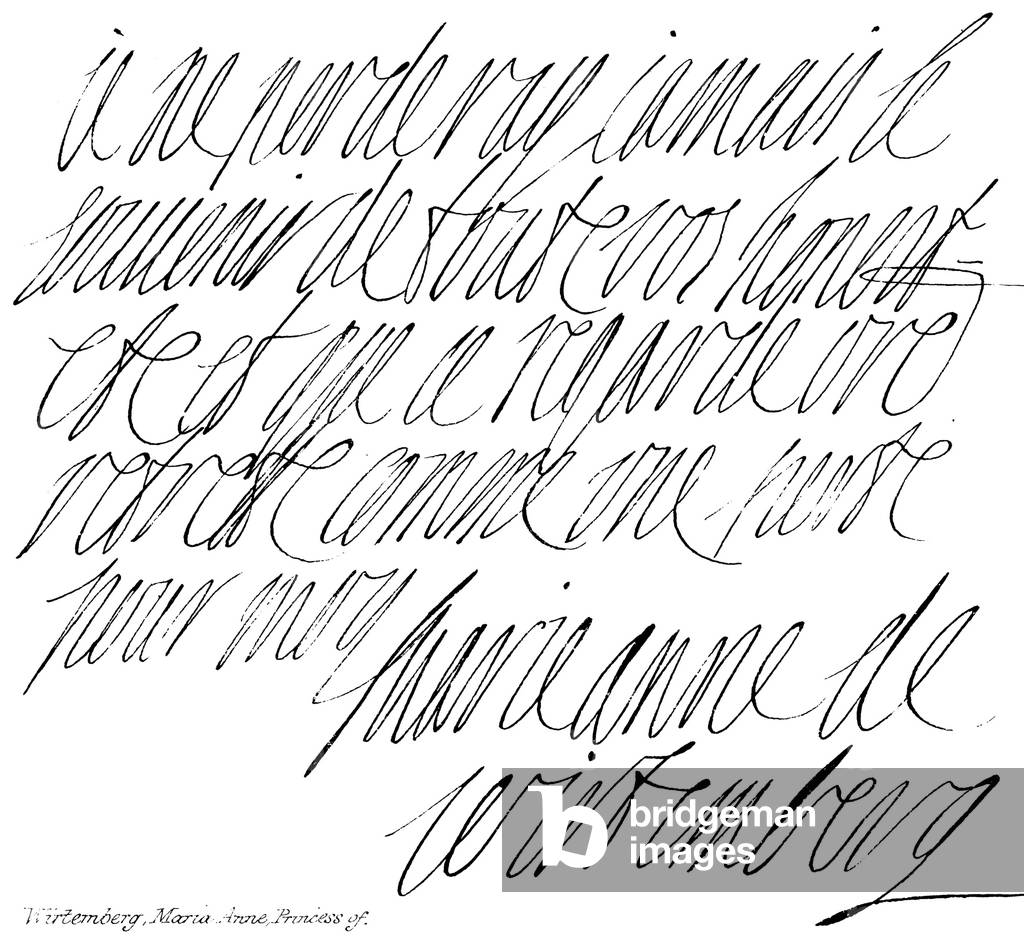 ie ne perderay iamais le
souuenir de toute vos honest=
este et que ie regarde vre
comme vne
pour moy
marie anne de
wirtemberg
b bridgeman
images
Wirtemberg, Maria Anne, Princess of.